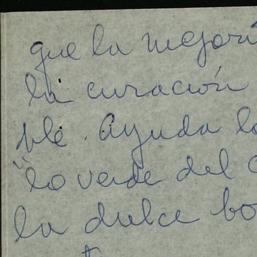 que la mejorí
la curación
ble. Ayuda l
"lo verde del
la dulce bo